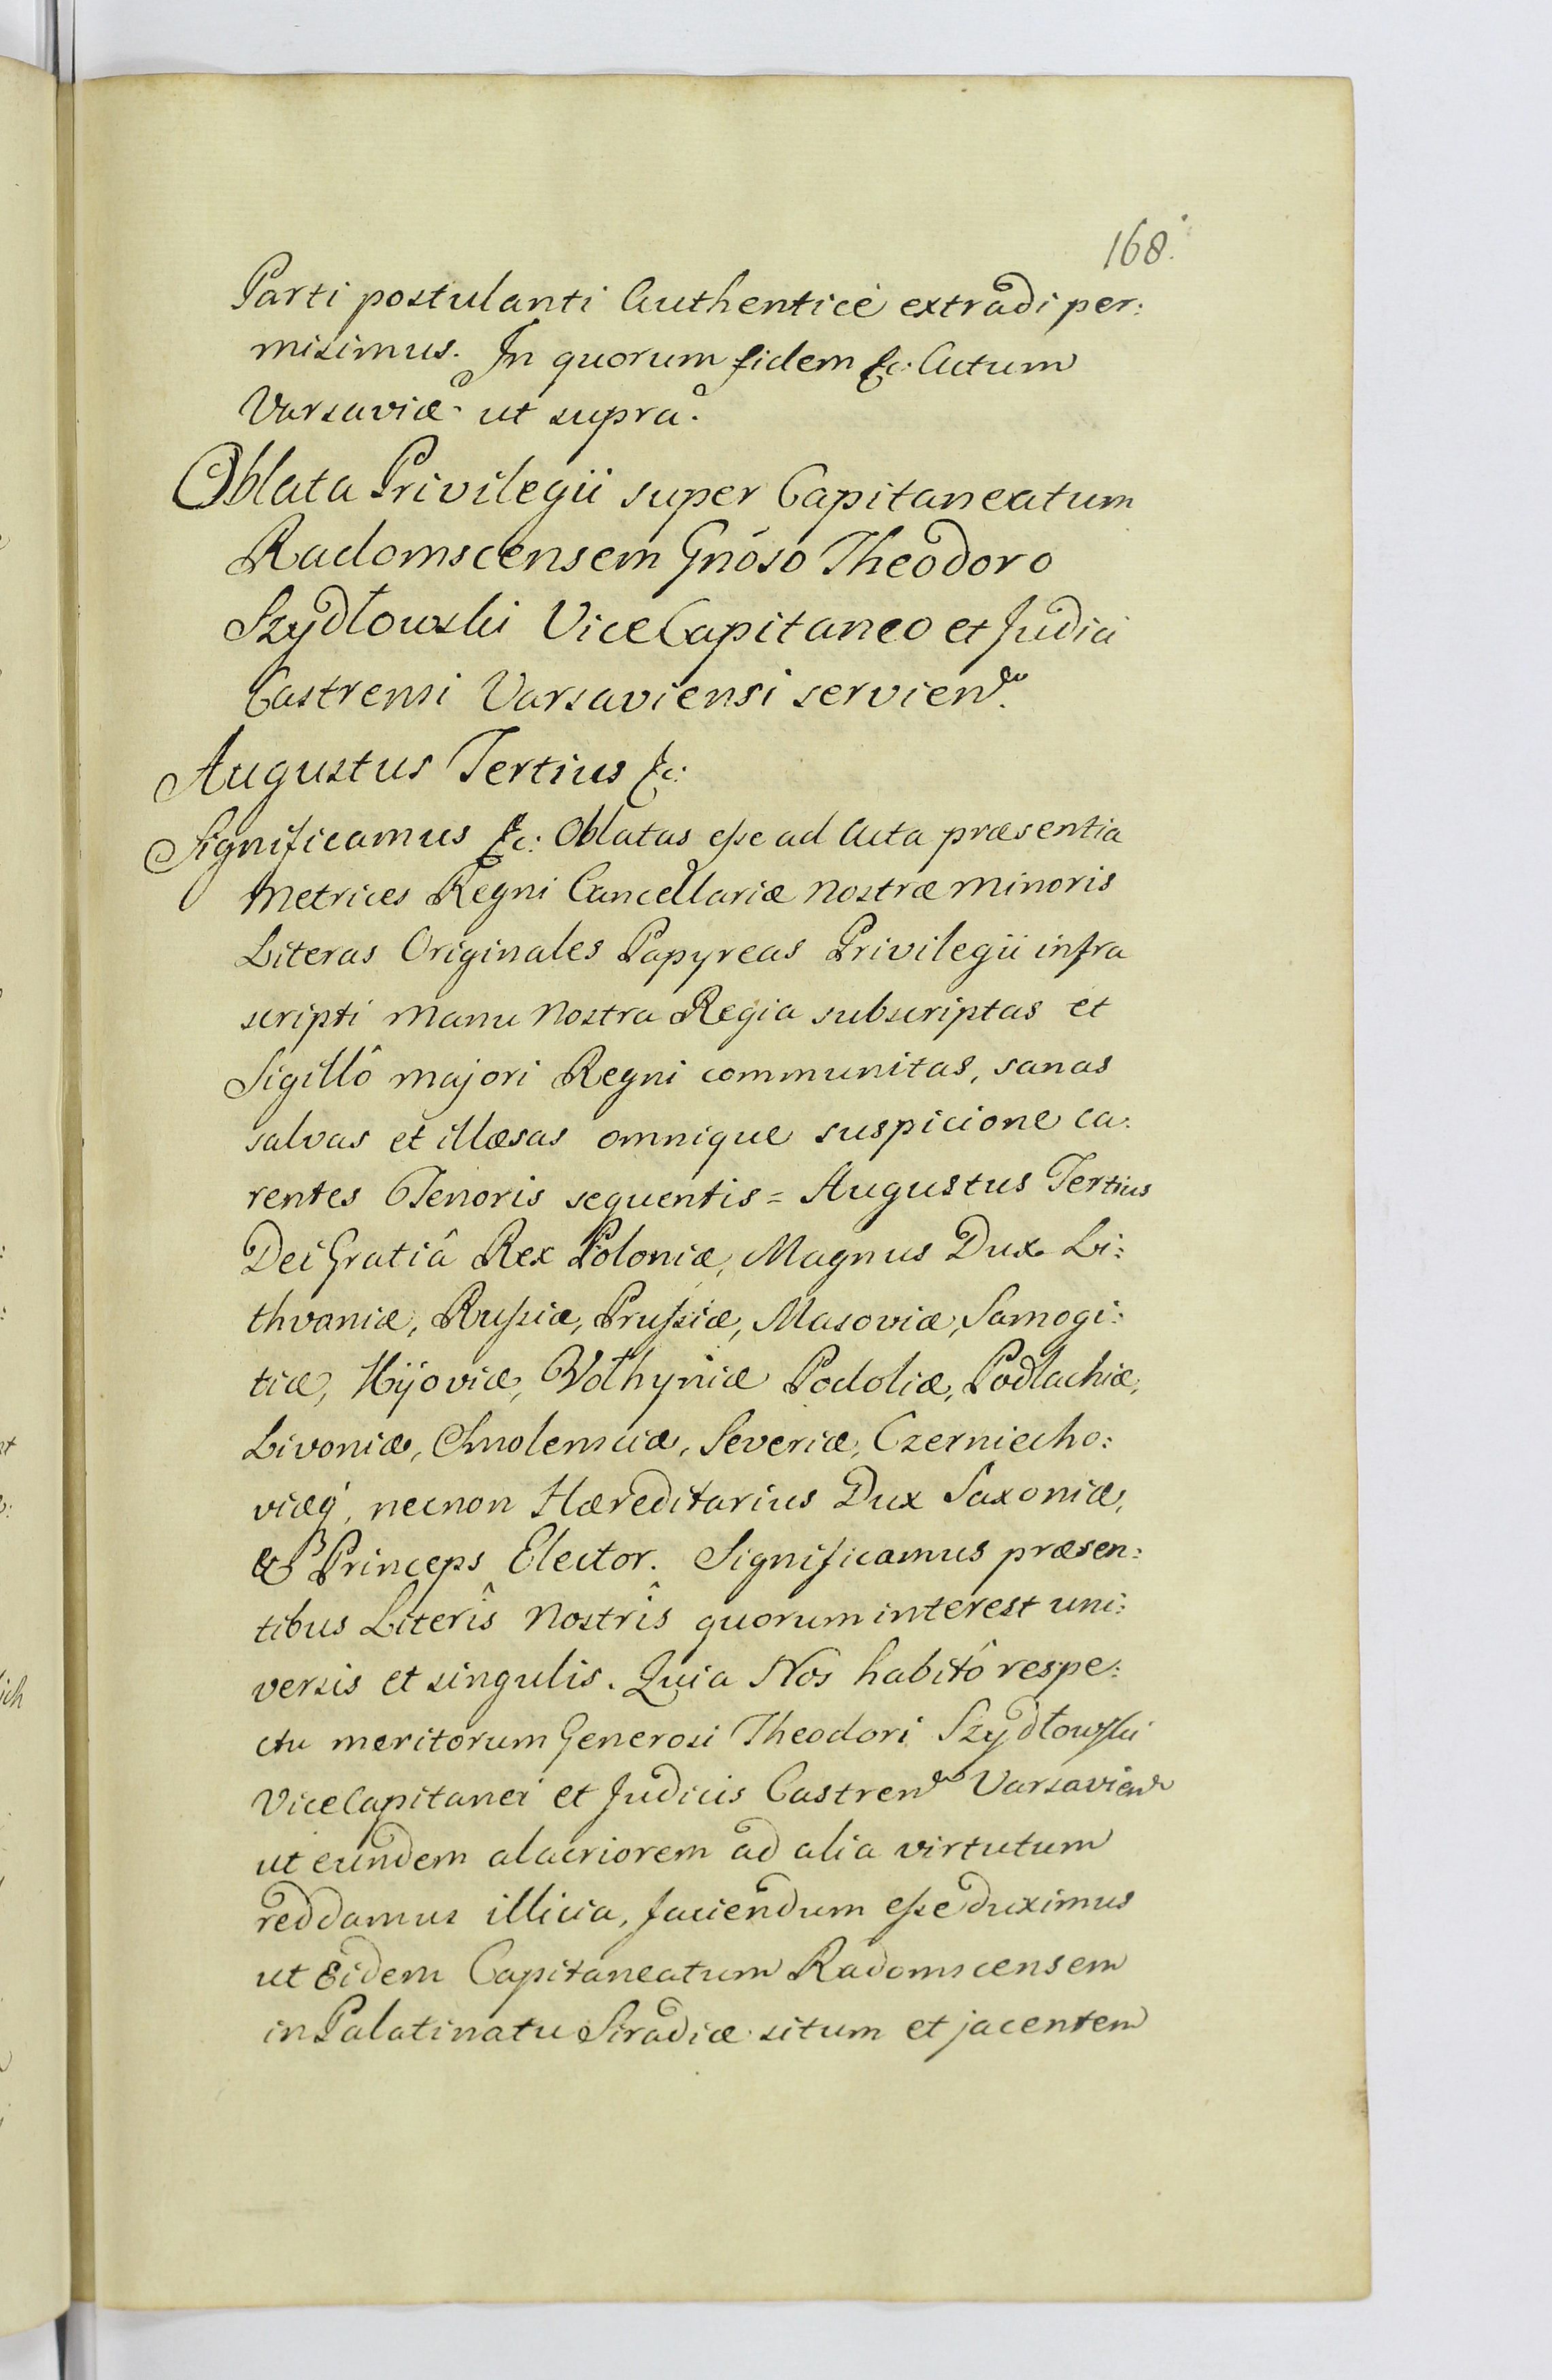 168.
Parti postulanti Authenticè extradi per:
misimus. In quorum fidem &c: Actum
Varsaviæ ut supra.
Oblata Privilegii super Capitaneatum
Radomscensem Gnôso Theodoro
Szydłowski ViceCapitaneo et Judici
Castrensi Varsaviensi servien.
Augustus Tertius &c:
Significamus &c: Oblatas esse ad Acta præsentia
Metrices Regni Cancellariæ Nostræ Minoris
Literas Originales Papyreas Privilegii infra
scripti Manu Nostra Regia subscriptas et
Sigillô majori Regni communitas, sanas
salvas et illæsas omnique suspicione ca:
rentes Tenoris sequentis = Augustus Tertius
Dei Gratiâ Rex Poloniæ, Magnus Dux Li:
thvaniæ, Russiæ, Prussiæ, Masoviæ, Samogi:
tiæ, Kijoviæ, Volhyniæ Podoliæ, Podlachiæ,
Livoniæ, Smolensciæ, Severiæ, Czerniecho:
viæq, necnon Hæreditarius Dux Saxoniæ,
& Princeps Elector. Significamus præsen:
tibus Literîs Nostrîs quorum interest uni:
versis et singulis. Quia Nos habitô respe:
ctu meritorum Generosi Theodori Szydłowski
ViceCapitanei et Judicis Castren Varsavien
ut eundem alacriorem ad alia virtutum
reddamus illicia, faciendum esse duximus
ut Eidem Capitaneatum Radomscensem
in Palatinatu Siradiæ situm et jacentem